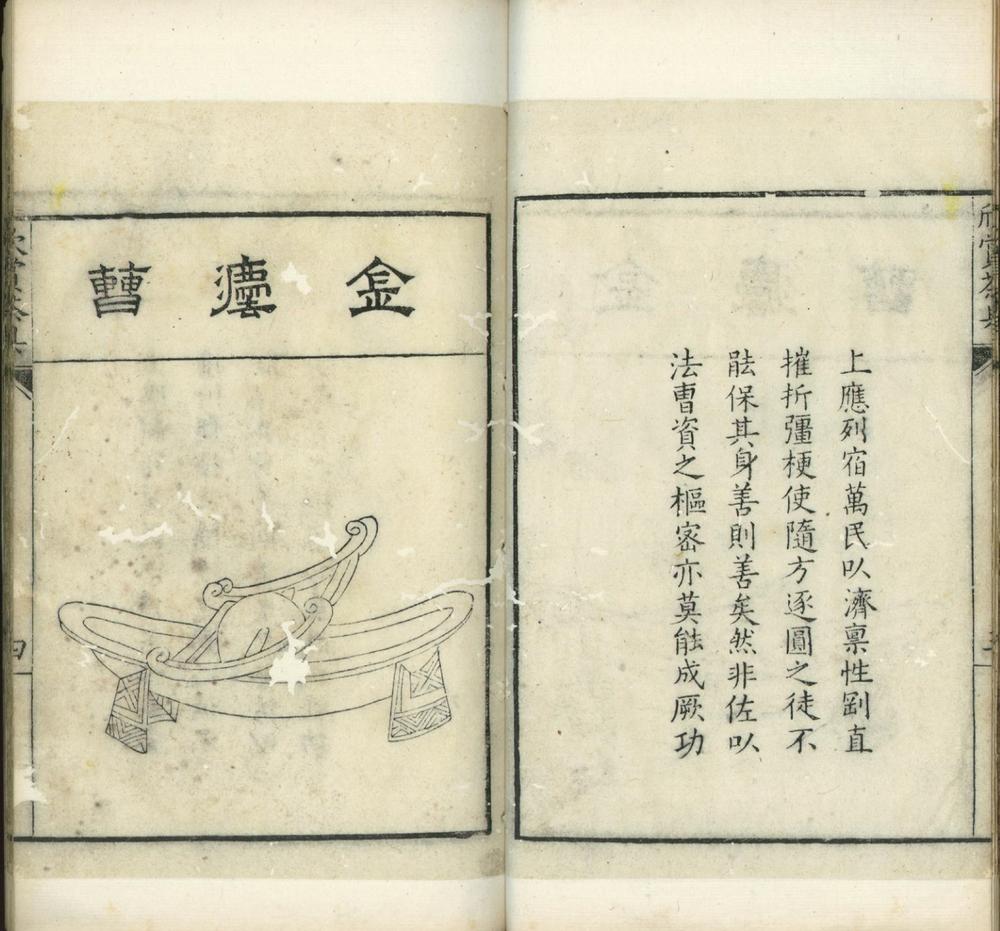 欣賞茶具
上應列宿萬民以濟稟性剛直
摧折彊梗使隨方逐圓之徒不
能保其身善則善矣然非佐以
法曹資之樞密亦莫能成厥功
金灋曹
欣賞茶具
四